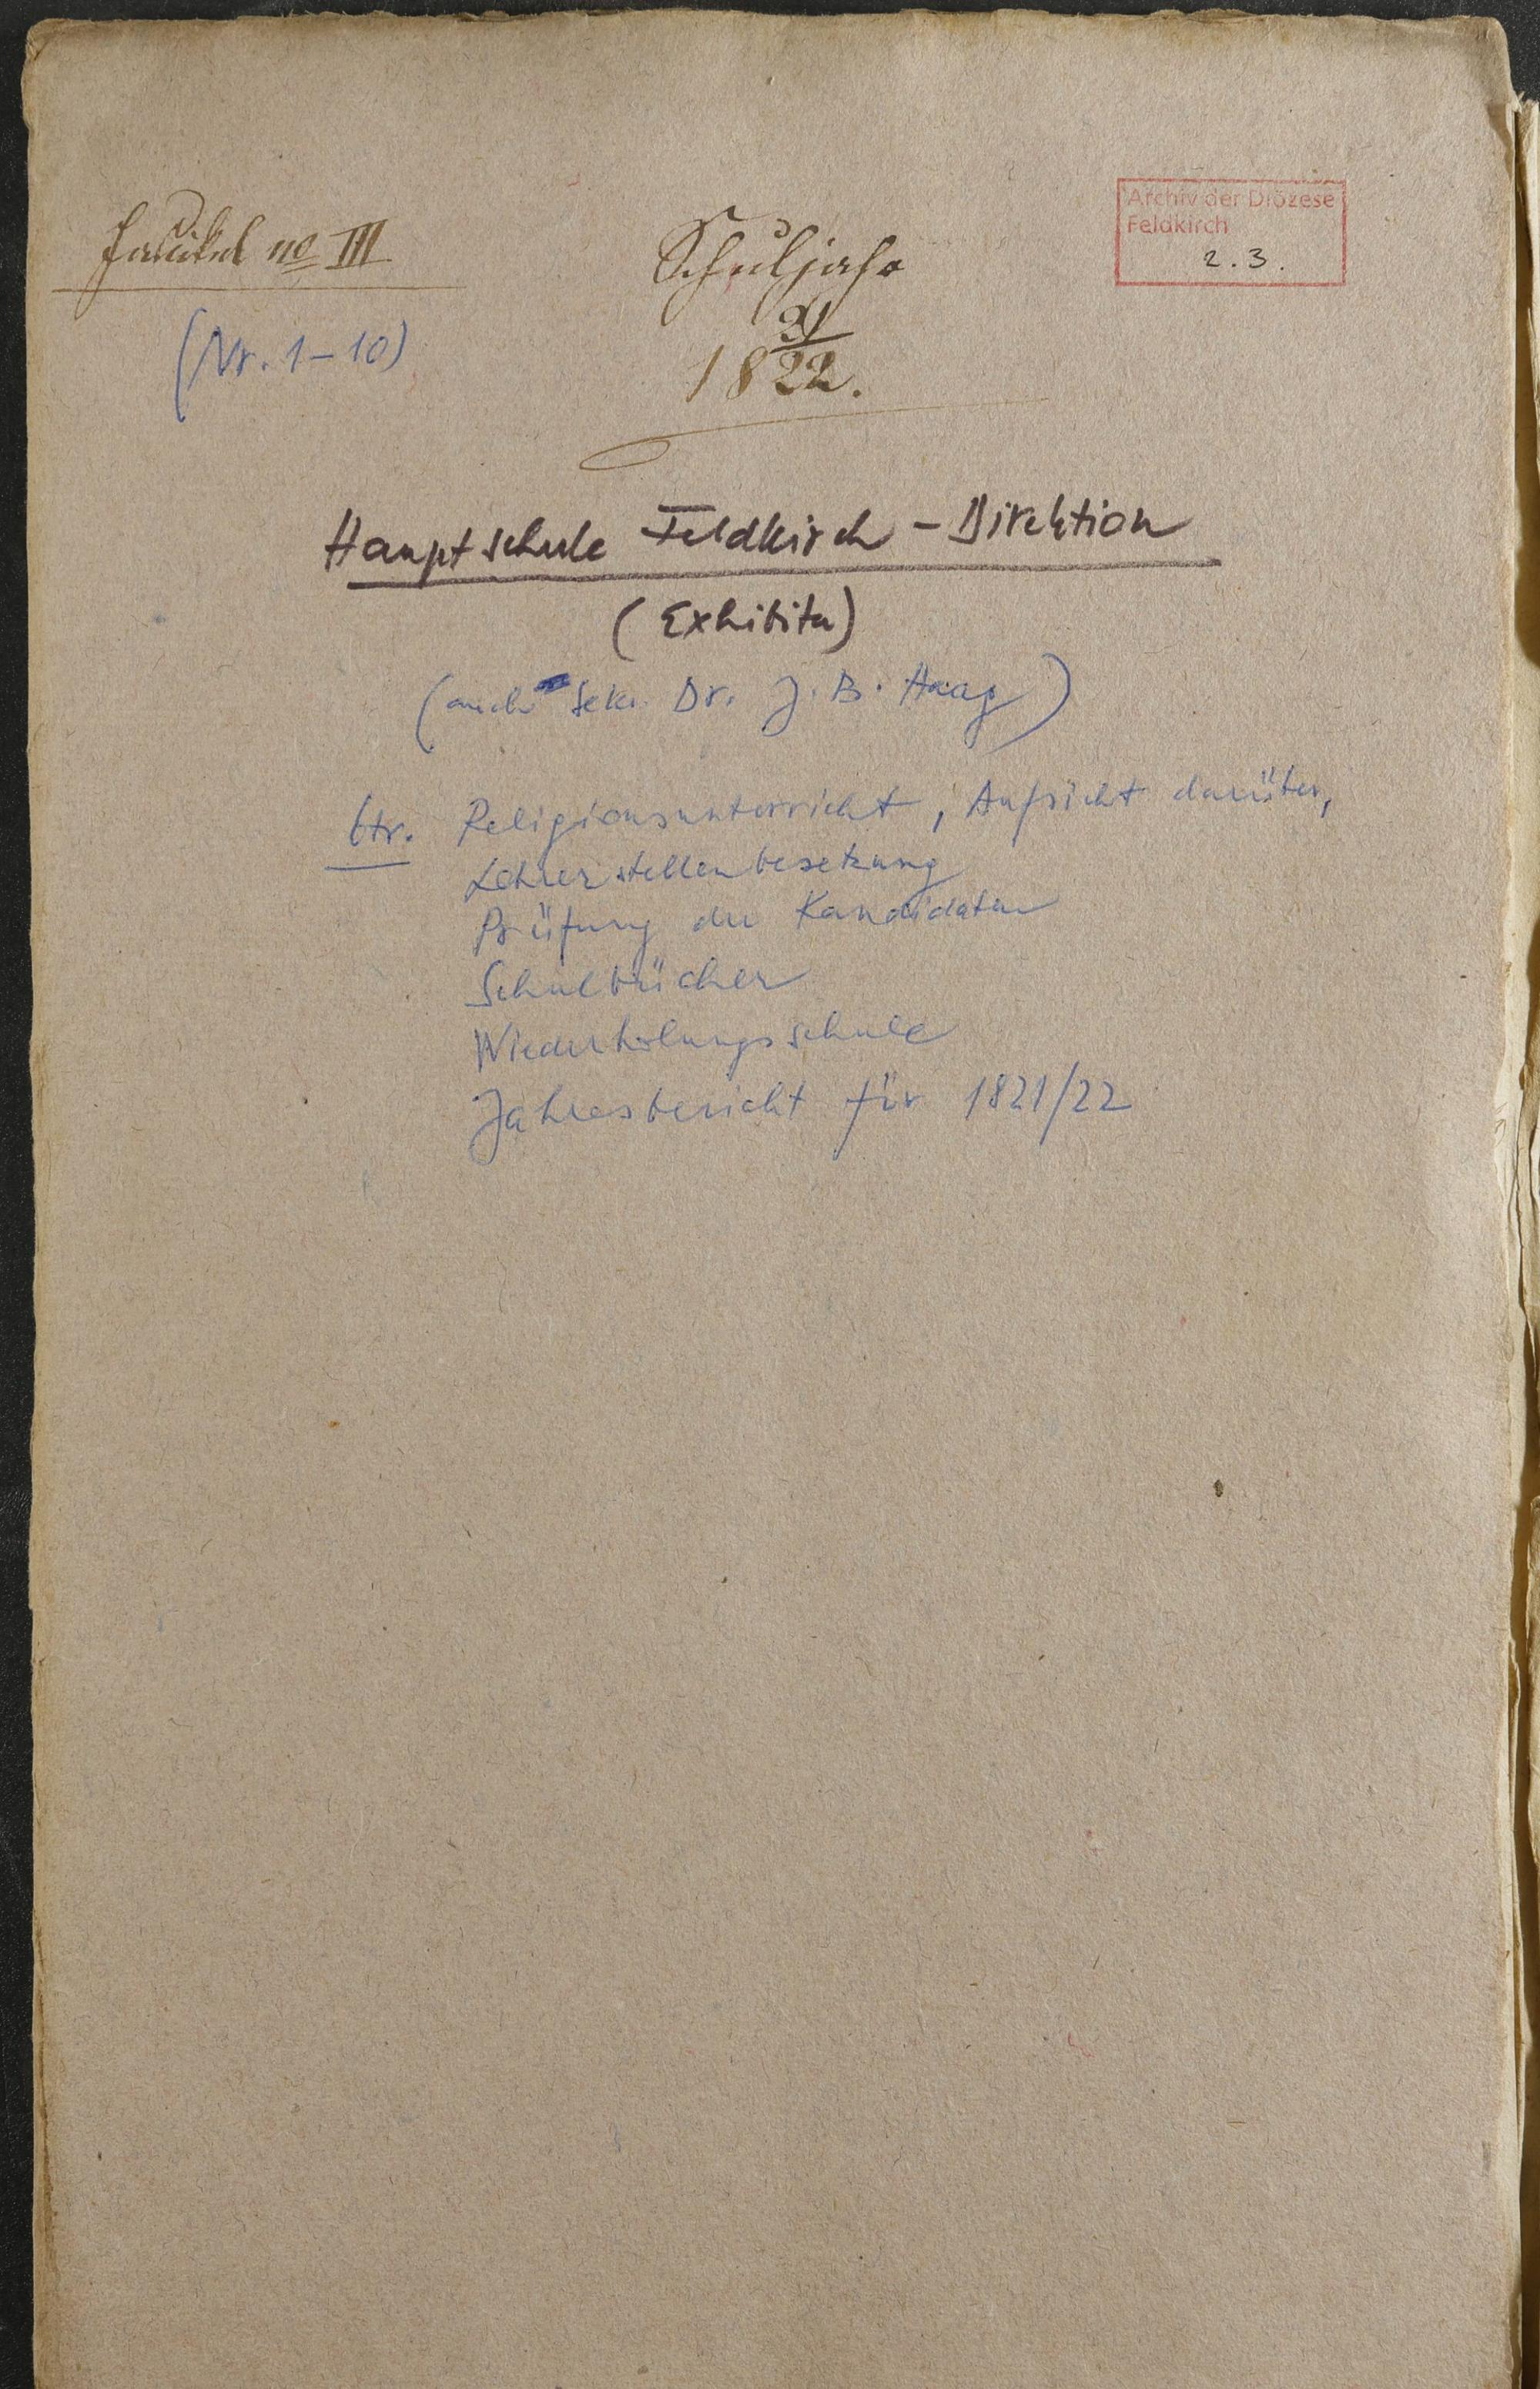 Archiv der Diözese
Feldkirch
2.3.
Fascikel no III
(Nr. 1-10)
Schuljahr
18 21/22.
Hauptschule Feldkirch - Direktion
(Exhibita)
(auch Sekr. Dr. J. B. Haag)
btr. Religionsunterricht, Aufsicht darüber,
Lehrerstellenbesetzung
Prüfung der Kandidaten
Schulbücher
Wiederholungsschule
Jahresbericht für 1821/22